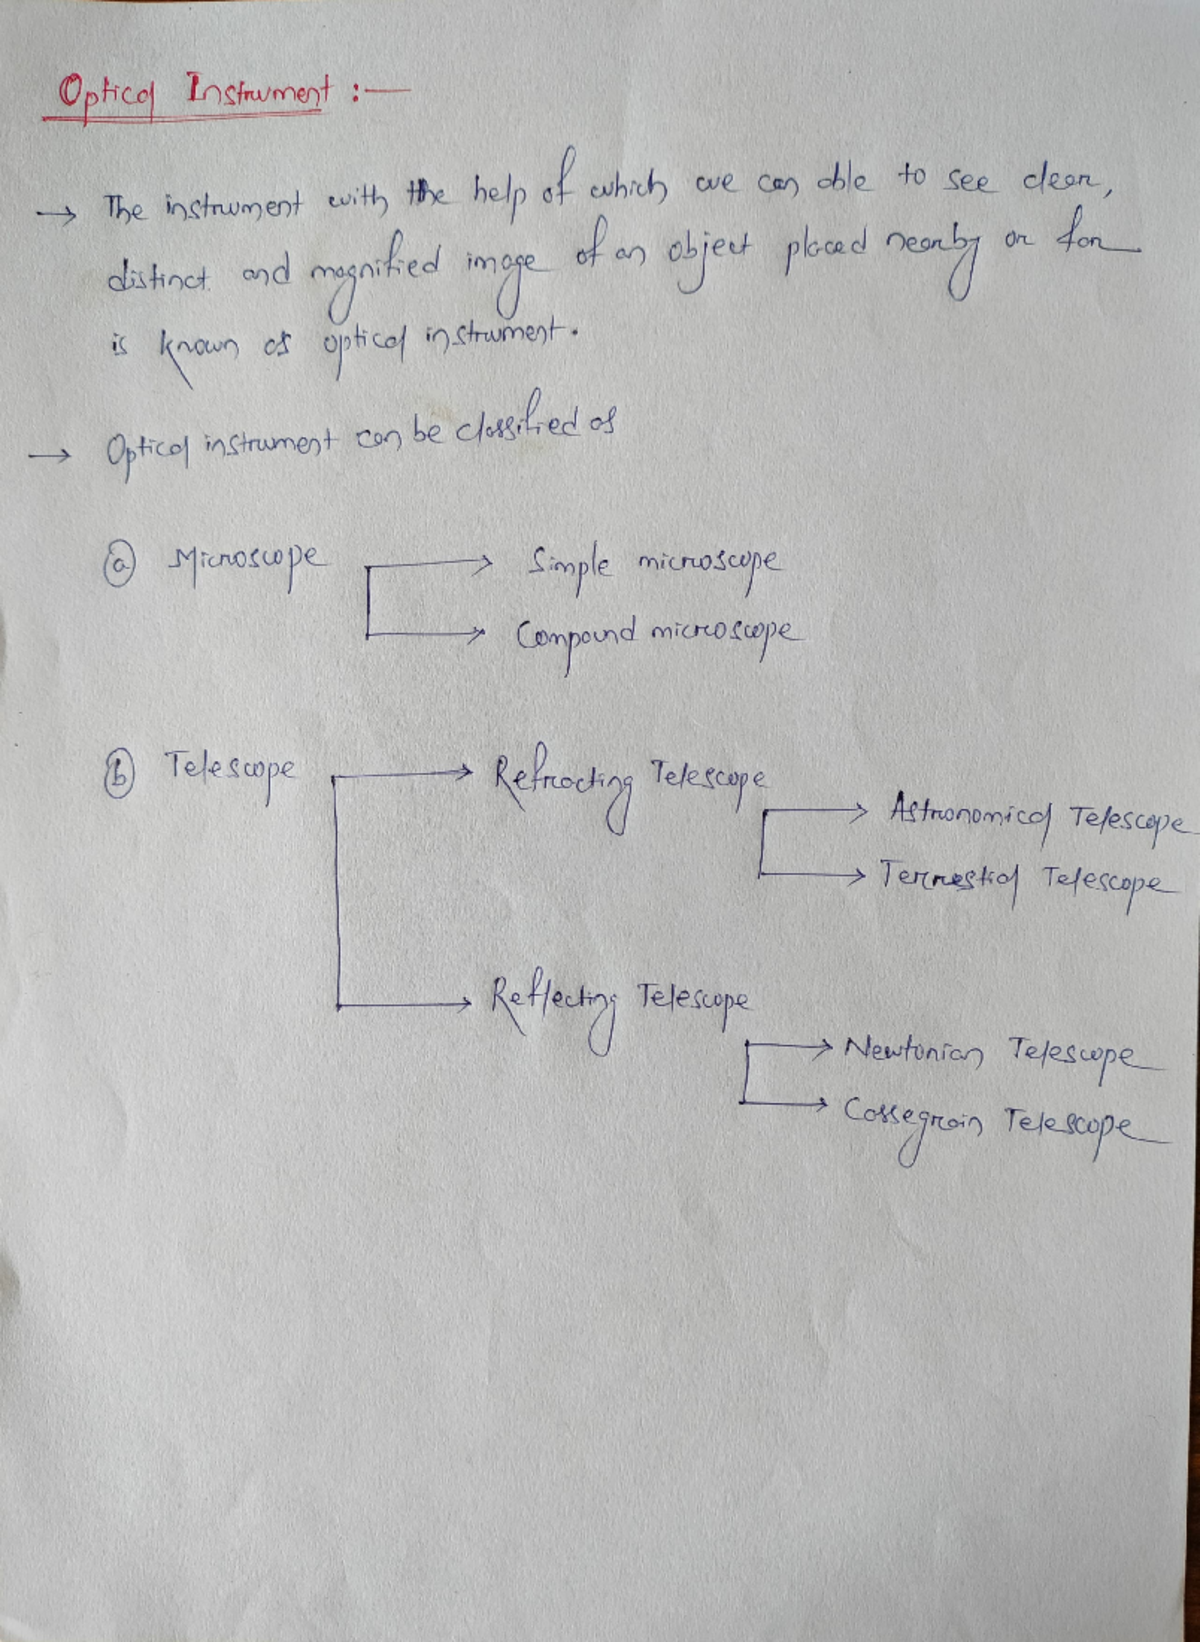 Optical Instrument :—
→ The instrument with the help of which we can able to see clear,
distinct and magnified image of an object placed nearby or far
is known as optical instrument.
→ Optical instrument can be classified as
ⓐ Microscope → Simple microscope
→ Compound microscope
ⓑ Telescope → Refracting Telescope
→ Astronomical Telescope
→ Terrestial Telescope
→ Reflecting Telescope
→ Newtonian Telescope
→ Cassegrain Telescope